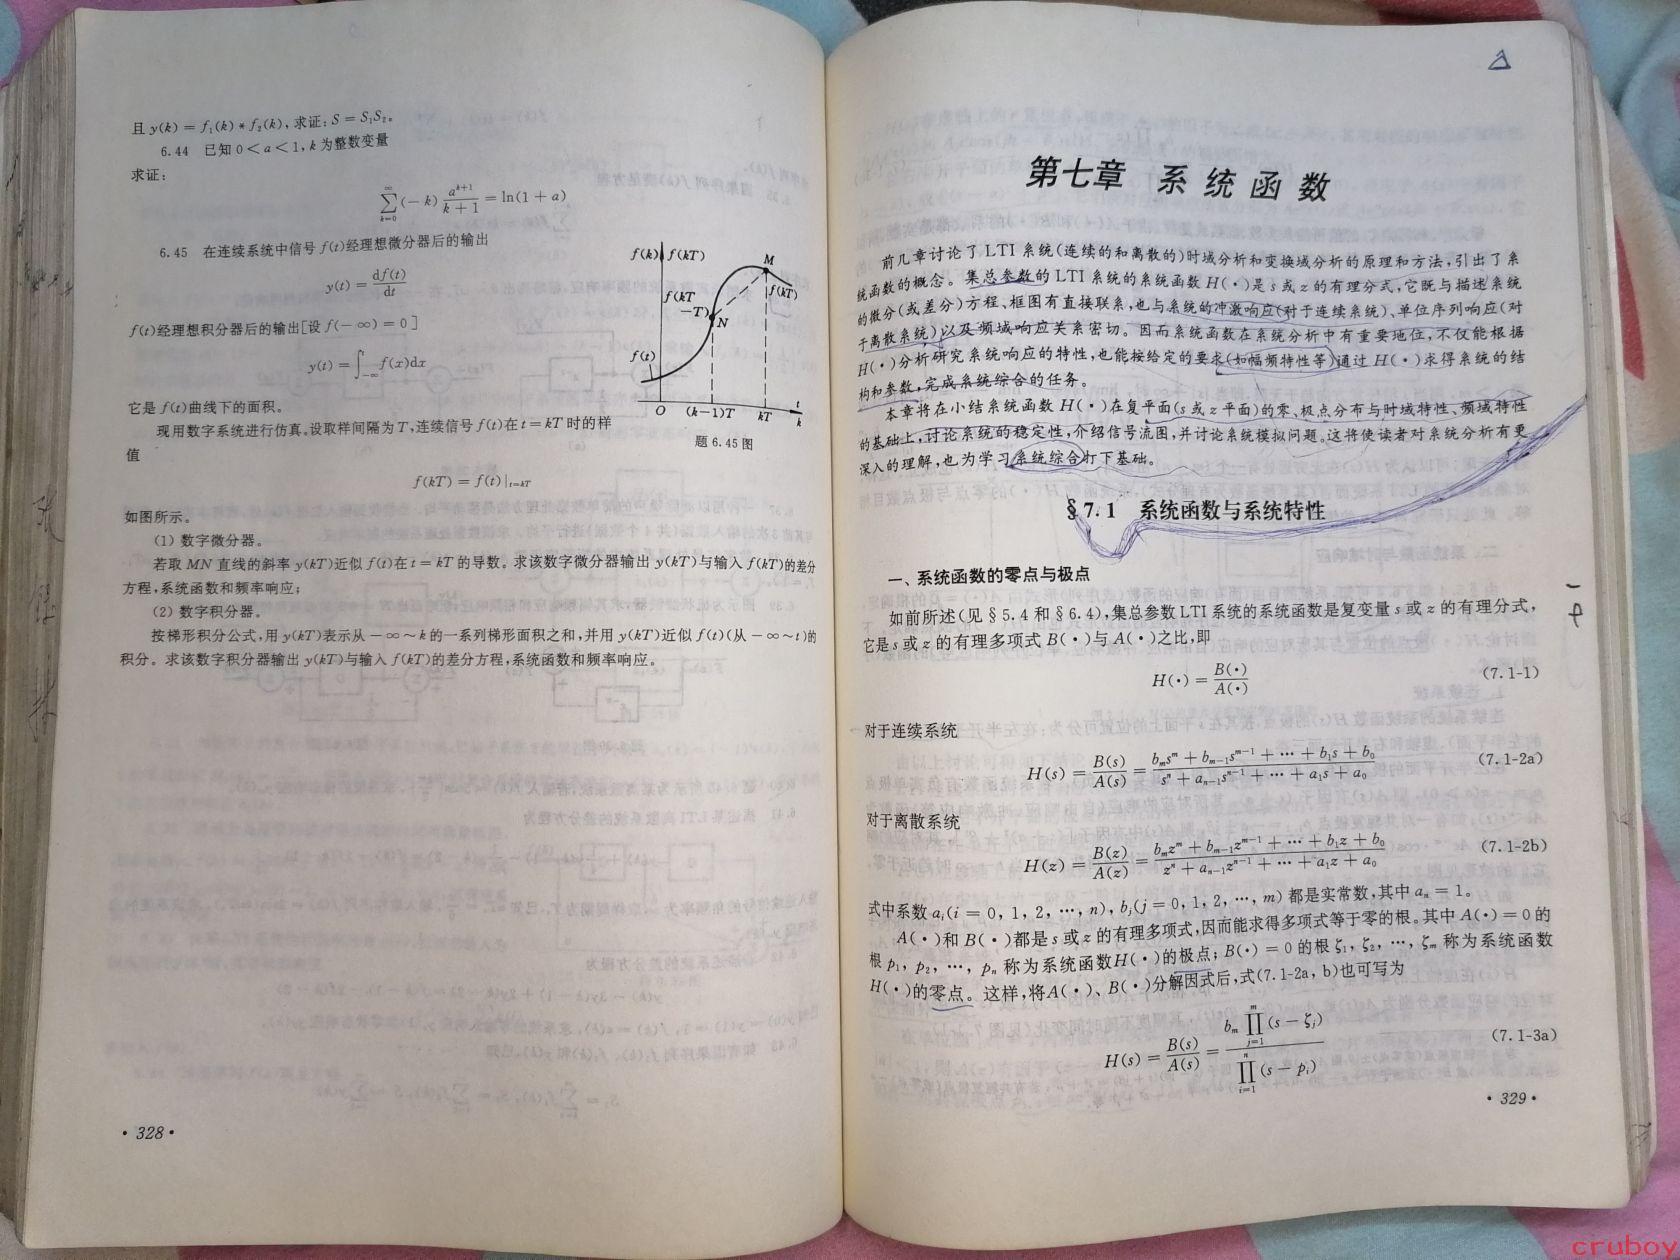 且 y(k) = f₁(k) * f₂(k), 求证: S = S₁S₂。
6.44 已知 0 < a < 1, k 为整数变量
求证:
∑_{k=0}^{∞} (-k) \frac{a^{k+1}}{k+1} = ln(1 + a)
6.45 在连续系统中信号 f(t)经理想微分器后的输出
y(t) = \frac{df(t)}{dt}
f(t)经理想积分器后的输出[设 f(-∞) = 0]
y(t) = ∫_{-∞}^{t} f(x)dx
它是 f(t)曲线下的面积。
现用数字系统进行仿真。设取样间隔为 T, 连续信号 f(t)在 t = kT 时的样
值
f(kT) = f(t)|_{t=kT}
如图所示。
(1) 数字微分器。
若取 MN 直线的斜率 y(kT)近似 f(t)在 t = kT 的导数。求该数字微分器输出 y(kT)与输入 f(kT)的差分
方程, 系统函数和频率响应;
(2) 数字积分器。
按梯形积分公式, 用 y(kT)表示从 -∞～k 的一系列梯形面积之和, 并用 y(kT)近似 f(t)(从 -∞～t)的
积分。求该数字积分器输出 y(kT)与输入 f(kT)的差分方程, 系统函数和频率响应。
f(k) f(kT)
M
f(kT)
f(kT
-T)
N
f(t)
O (k-1)T kT t
k
题 6.45 图
· 328 ·
第七章 系统函数
前几章讨论了 LTI 系统(连续的和离散的)时域分析和变换域分析的原理和方法, 引出了系
统函数的概念。集总参数的 LTI 系统的系统函数 H(·)是 s 或 z 的有理分式, 它既与描述系统
的微分(或差分)方程、框图有直接联系, 也与系统的冲激响应(对于连续系统)、单位序列响应(对
于离散系统)以及频域响应关系密切。因而系统函数在系统分析中有重要地位, 不仅能根据
H(·)分析研究系统响应的特性, 也能按给定的要求(如幅频特性等)通过 H(·)求得系统的结
构和参数, 完成系统综合的任务。
本章将在小结系统函数 H(·)在复平面(s 或 z 平面)的零、极点分布与时域特性、频域特性
的基础上, 讨论系统的稳定性, 介绍信号流图, 并讨论系统模拟问题。这将使读者对系统分析有更
深入的理解, 也为学习系统综合打下基础。
§ 7.1 系统函数与系统特性
一、系统函数的零点与极点
如前所述(见 § 5.4 和 § 6.4), 集总参数 LTI 系统的系统函数是复变量 s 或 z 的有理分式,
它是 s 或 z 的有理多项式 B(·)与 A(·)之比, 即
H(·) = \frac{B(·)}{A(·)} (7.1-1)
对于连续系统
H(s) = \frac{B(s)}{A(s)} = \frac{b_m s^m + b_{m-1}s^{m-1} + ··· + b_1 s + b_0}{s^n + a_{n-1}s^{n-1} + ··· + a_1 s + a_0} (7.1-2a)
对于离散系统
H(z) = \frac{B(z)}{A(z)} = \frac{b_m z^m + b_{m-1}z^{m-1} + ··· + b_1 z + b_0}{z^n + a_{n-1}z^{n-1} + ··· + a_1 z + a_0} (7.1-2b)
式中系数 a_i(i = 0, 1, 2, ···, n), b_j(j = 0, 1, 2, ···, m) 都是实常数, 其中 a_n = 1。
A(·)和 B(·)都是 s 或 z 的有理多项式, 因而能求得多项式等于零的根。其中 A(·) = 0 的
根 p₁, p₂, ···, p_n 称为系统函数 H(·)的极点; B(·) = 0 的根 ζ₁, ζ₂, ···, ζ_m 称为系统函数
H(·)的零点。这样, 将 A(·)、B(·)分解因式后, 式(7.1-2a, b)也可写为
H(s) = \frac{B(s)}{A(s)} = \frac{b_m ∏_{j=1}^{m} (s - ζ_j)}{∏_{i=1}^{n} (s - p_i)} (7.1-3a)
· 329 ·
cruboy